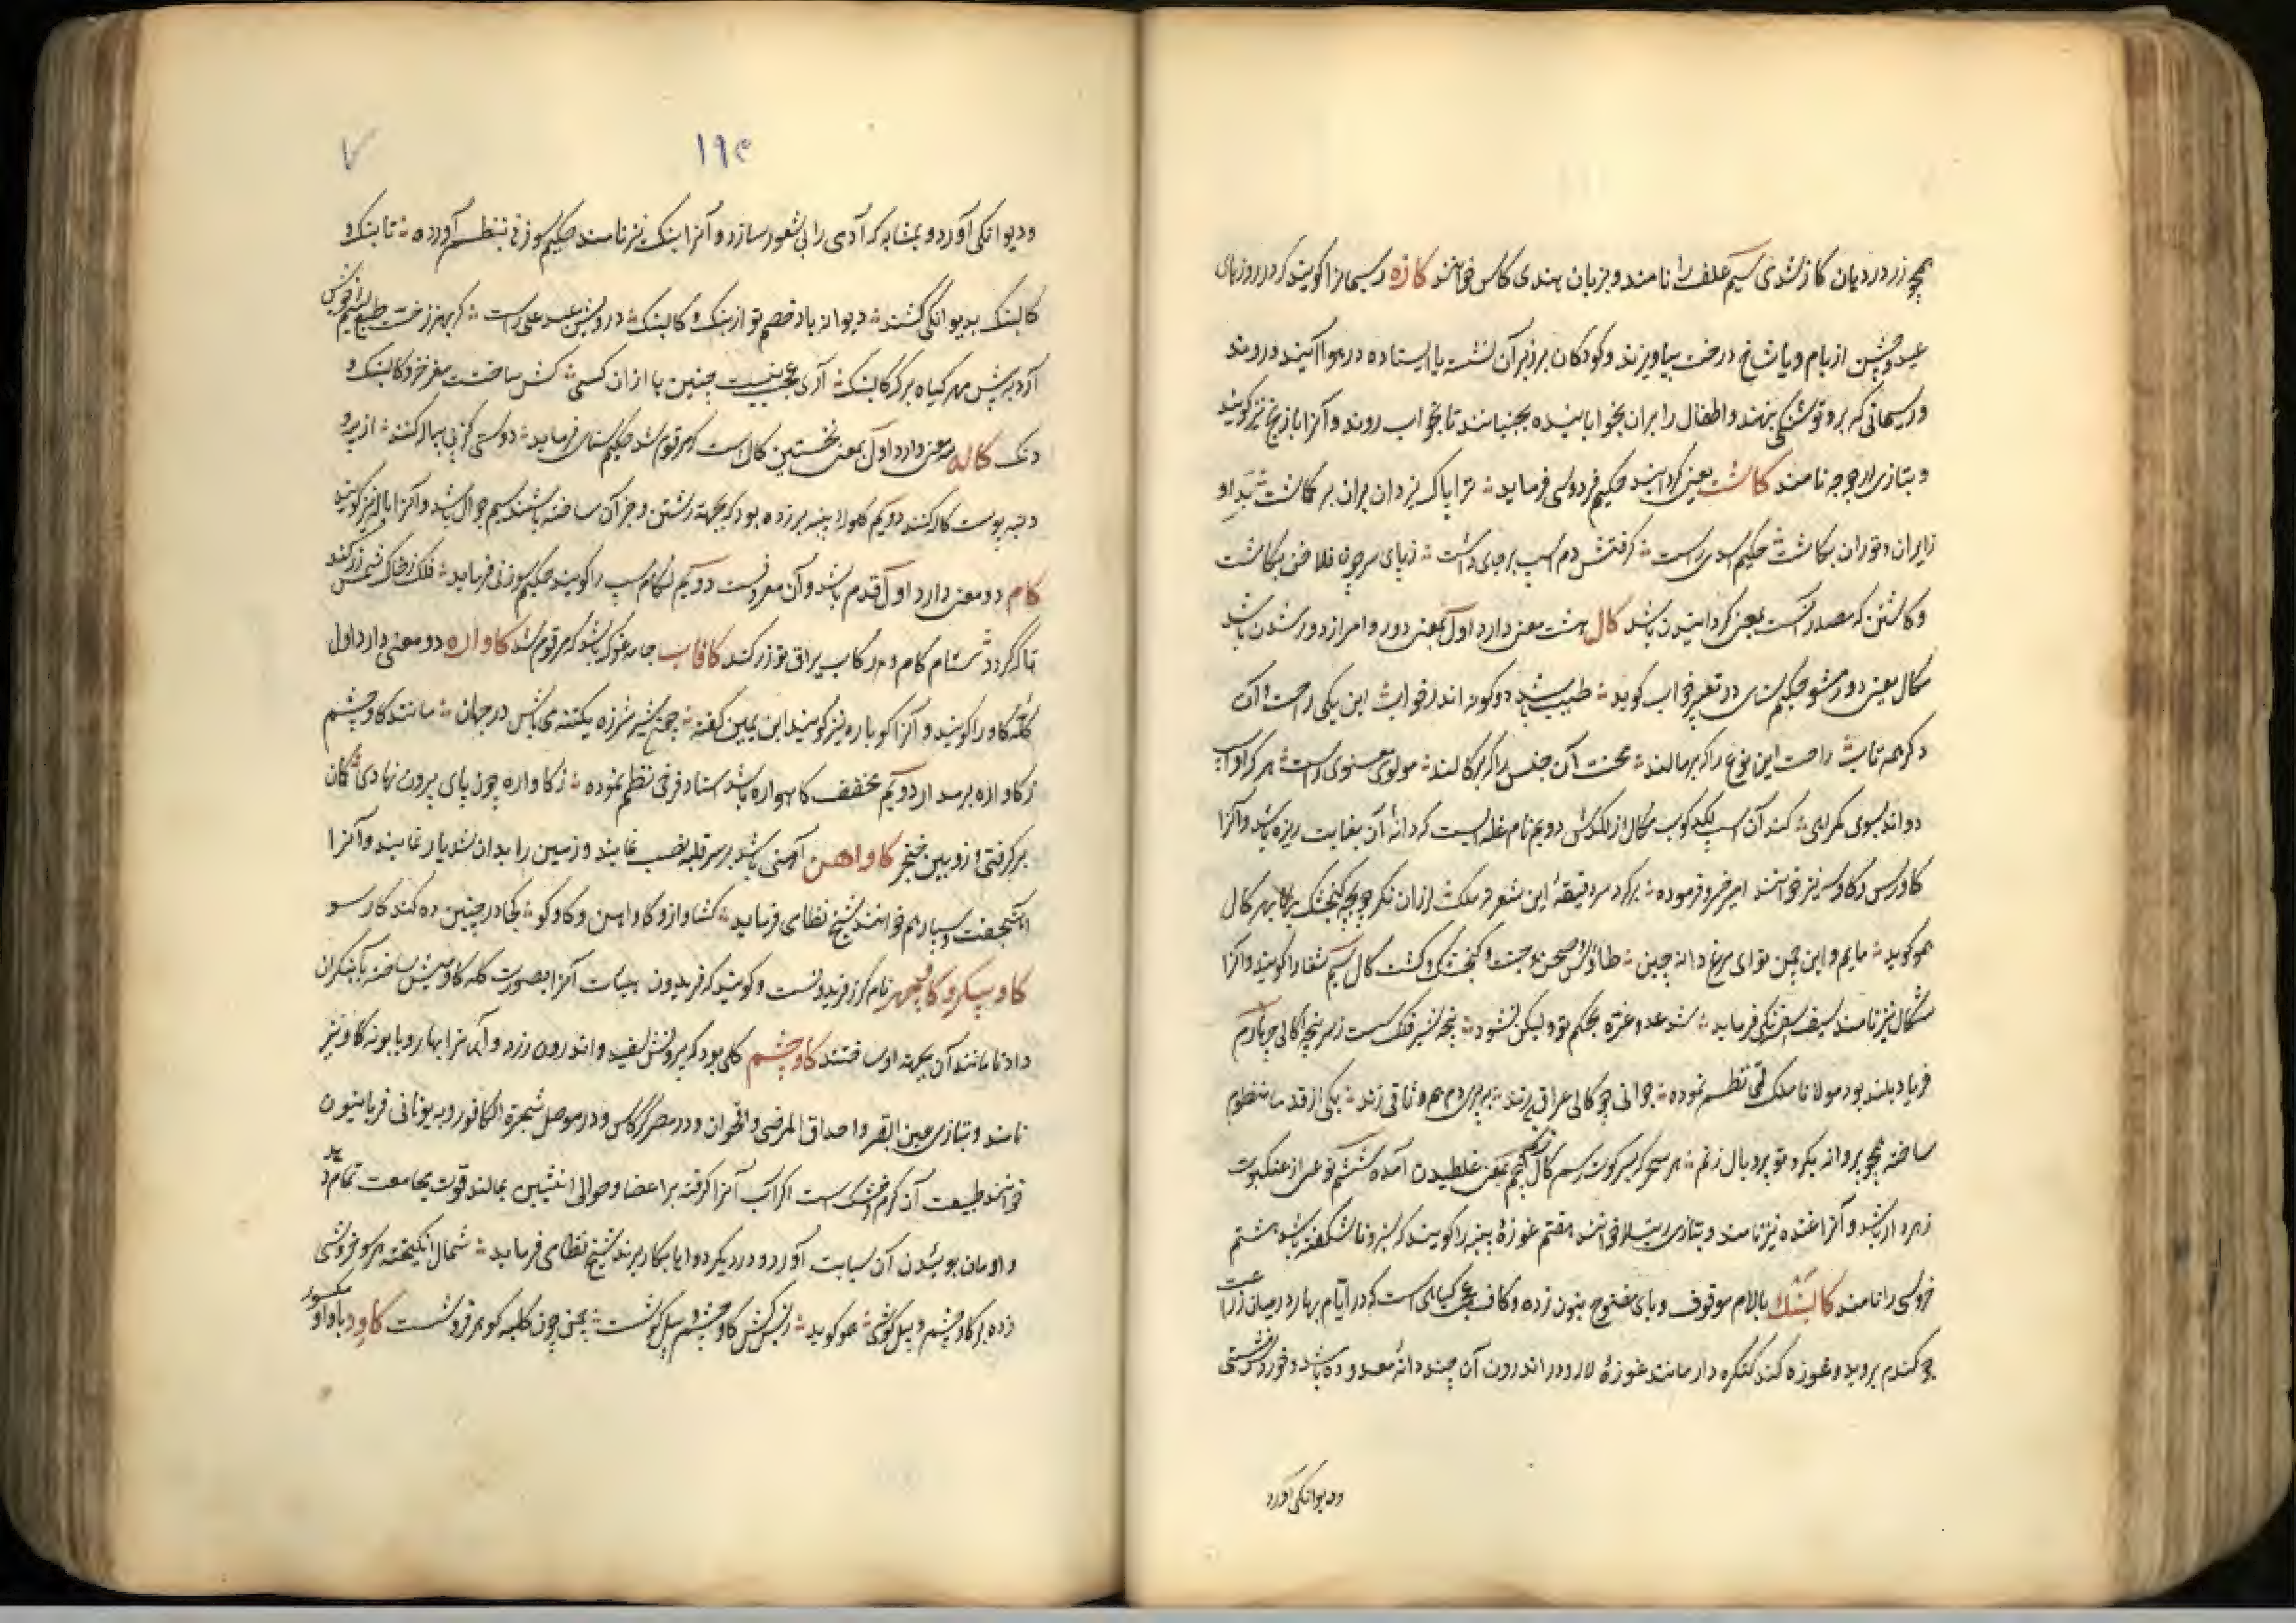 همچو زر در دیان کاز شدی سیم علف را نامند و بزبان هندی کاس خوانند کازه ریسمانرا کویند که در روزهای
عید و جشن از بام و یا شاخ درخت بیاویزند و کودکان برزبر آن نشسته یا ایستاده در هوا آیند و روند
و ریسمانی که برو توشکی بنهند و اطفال را بران بخوابانیده بجنبانند تا بخواب روند و آنرا بازپیخ نیز کویند
و بتازی ارجوجه نامند کاشت یعنی کردانید حکیم فردوسی فرماید ترا پاک یزدان بران بر کماشت بد او
ز ایران و توران بکاشت حکیم اسدی راست کرفتش دم اسپ بر جای داشت ز بهای فلاخن بکاشت
و کاشتن که مصدر آنست بمعنی کردانیدن باشد کال هشت معنی دارد اول بمعنی دور و امر از دور شدن باشد
مکال یعنی دور مشو حکیم سنای در تعبیر خواب کوید طبیب باشد دوکونه اندر خواب این یکی راحت و آن
دکر همه تاب راحت این نوع را که برمالند محنت آن جنس را که برکالند مولوی معنوی راست هر که او اسپ
دواند بسوی کمراهی کند آن اسپ لکدکوب مکال از لکدش دویم نام غله ایست که دانهٔ آن بغایت ریزه باشد و آنرا
کاورس و کاوسه نیز خوانند امیر خسرو فرموده برکرد سر دقیقهٔ این شعر ملک ارزان نکر چو بچه کنجشک بهر کال
همو کوید مایم و این چمن تو ای مرغ دانه چین طاؤس و صحن و جنت و کنجشک و کشت کال سیم شغا را کویند و آنرا
شکال نیز نامند سیف اسفرنکی فرماید شد عدو غره بحکم تو و لیکن نشود پنجه شیر فلک سست ز سرپنجهٔ کالی چهارم
فریاد بلند بود مولانا ملک قمی نظم نموده جوانی چو کالی عراقی زند بهر دم هم وثاقی زند یکی از قدما منظوم
ساخته همچو پروانه بکرد تو پر و بال زنم هر سحر کر بسر کوت رسم کال پنجم بمعنی غلطیدن آمده ششم نوعی از عنکبوت
زهره دار باشد و آنرا غنده نیز نامند و بتازی رتیلا خوانند هفتم غوزهٔ پنبه را کویند که نیز وناشکفته باشد هشتم
خروسی را نامند کالبنک بالام موقوف و بای مفتوح بنون زده و کاف عجمی کیاهی است که در ایام بهار در میان زراعت
جو کندم بروید و غوزه کند کنکره دار مانند غوزهٔ لاله و در اندرون آن چند دانهٔ معدوده باشد و خوردنش مستی
ودیوانکی آورد
۱۹۴
ودیوانکی آورد و بمثابه که آدمی را بی شعور سازد و آنرا بنک نیز نامند حکیم سوزنی بنظم آورده تا بنک و
کالبنک بدیوانکی کشند دیوانه باد خصم تو از بنک و کالبنک درویش عبد علی راست کر بهر زخت طبع لئیم از خوش
آرد به پیش مهرکیاه برک کالبنک آری عجیب نیست چنین با از ان کسی کش ساختست مغز خر و کالبنک و
دنک کاله سه معنی دارد اول بمعنی نخستین کال است که مرقوم شد حکیم سنای فرماید دوستی کز پی پیاله کنند از برو
دنبه پوست کاله کنند دویم کلوله پنبه برزده بود که بجهت رشتن و جز آن ساخته باشند سیم جوال باشد و آنرا باله نیز کویند
کام دو معنی دارد اول قدم باشد و آن معروفست دویم لکام اسپ را کویند حکیم سوزنی فرماید فلک ز خاک زر کند
تا کردد ستام کام و رکاب براق تو زر کند کاواب جامه غوک باشد که مرقوم شد کاواره دو معنی دارد اول
کلهٔ کاو را کویند و آنرا کوباره نیز کویند ابن یمین کفته همچو شیر شرزه یکتنه می باش در جهان مانند کاو چشم
ز کاواره برمدار دویم مخفف کاهواره باشد استاد فرخی نظم نموده ز کاواره چون پای بیرون نهادی کمان
برکرفتی و زوبین خنجر کاواهن آهنی باشد بر سر قلبه نصب نمایند و زمین را بدان شدیار نمایند و آنرا
آهنجفت و سپار هم خوانند شیخ نظامی فرماید کشاورزو کاو آهن و کاو کو کجا در چنین ده کند کار سو
کاو پیکر و کاوچهر نام کرز فریدونست و کویند که فریدون هیات آنرا بصورت کله کاومیش ساخته بآهنکران
داد تا مانند آن بجهة او ساختند کاوچشم کلی بود که بیرونش سفید و اندرون زرد و آنرا بهار و بابونه کاو نیز
نامند و بتازی عین البقر و احداق المرضی و اقحوان و در مصر کرکاس و در موصل شجرة الکافور و به یونانی فرتانیون
خوانند طبیعت آن کرم و خشک است اکر آب آنرا کرفته بر اعضا و حوالی انثیین بمالند قوت مجامعت تمام دهد
و اومان بوئیدن آن سبابت آورد و در دیکر دواها بکار برند شیخ نظامی فرماید شمال انکیخته هر سو خروشی
زده بر کاوچشم و پیل کوشی همو کوید نرکس کش کاوچشم پیل کوشست چمن چون کلبه کوهر فروشست کاو د با واو مکسور